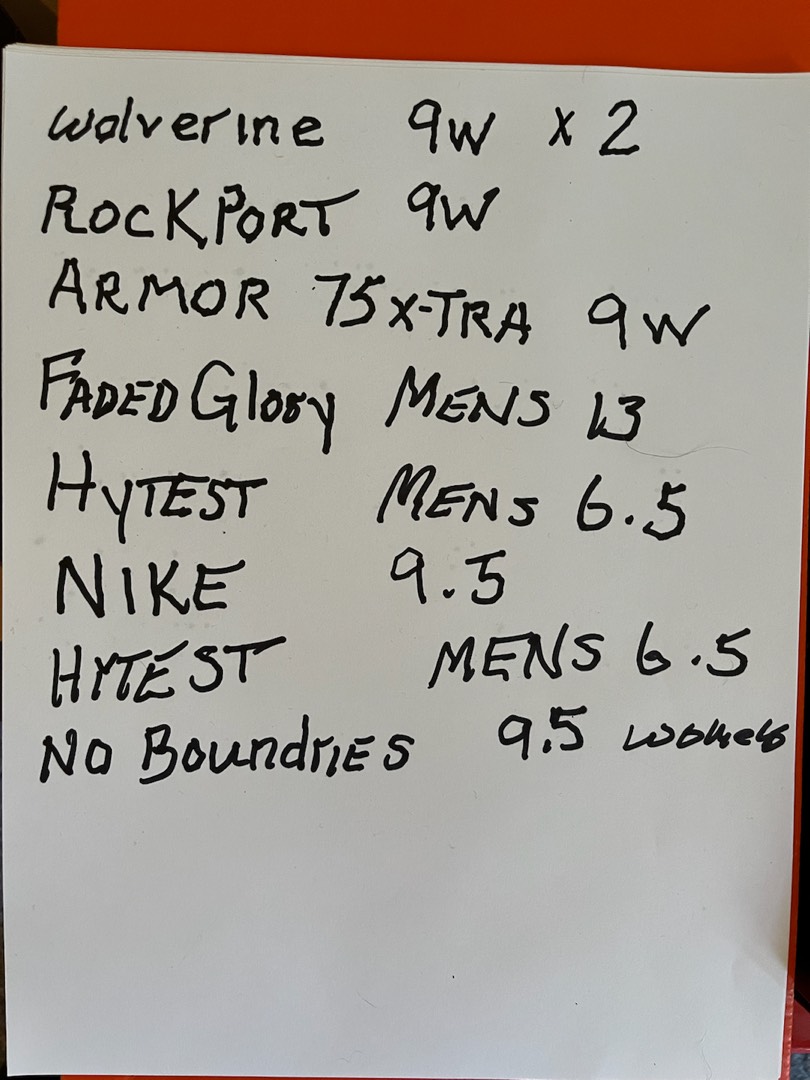 wolverine 9W x 2
ROCKPORT 9W
ARMOR 75 X-TRA 9W
FADED Glory MENS 13
HyTEST MENS 6.5
NIKE 9.5
HYTEST MENS 6.5
NO BoundrIES 9.5 womens